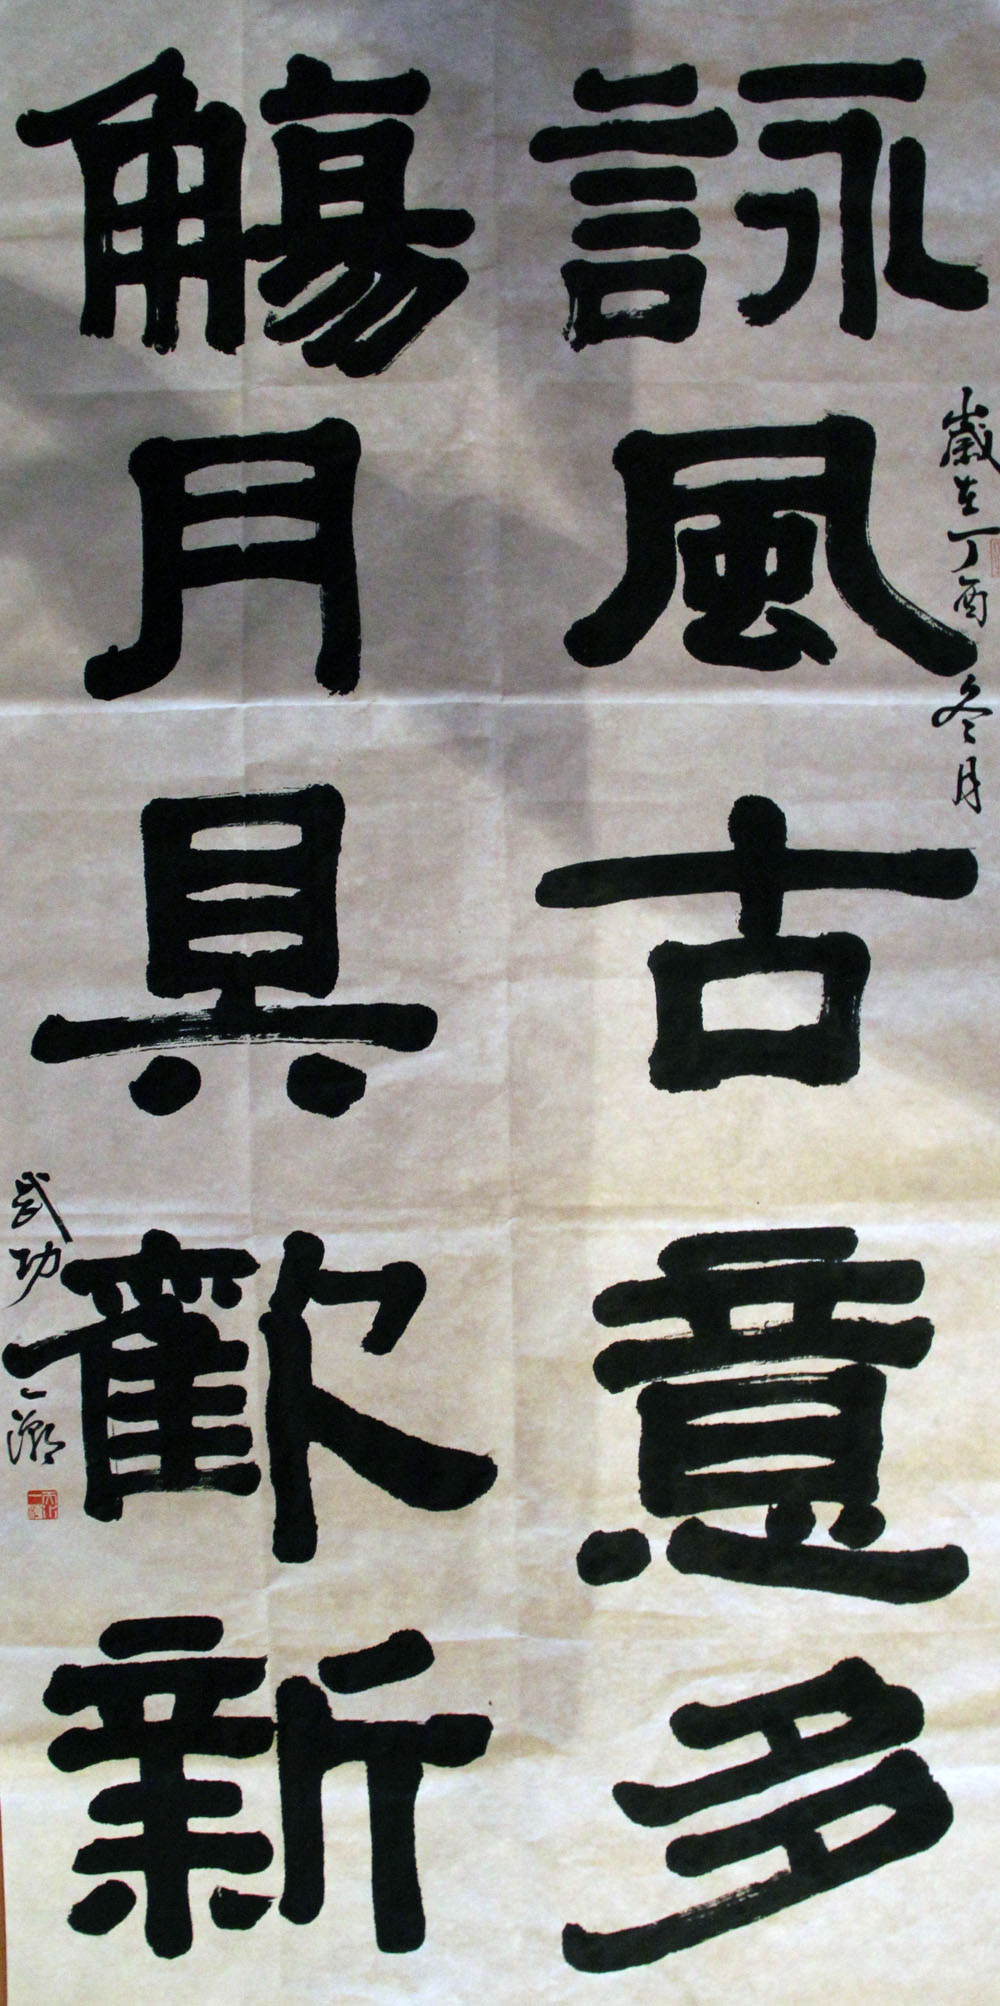 詠風古意多
歲在丁酉冬月
觴月具歡新
武功一灏